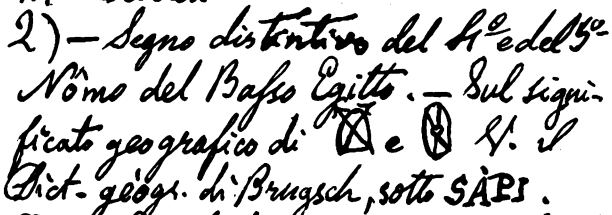 2) — Segno distintivo del 4º e del 5º
Nômo del Basso Egitto. — Sul signi-
ficato geografico di e V. il
Dict. géogr. di Brugsch, sotto SÀPI.